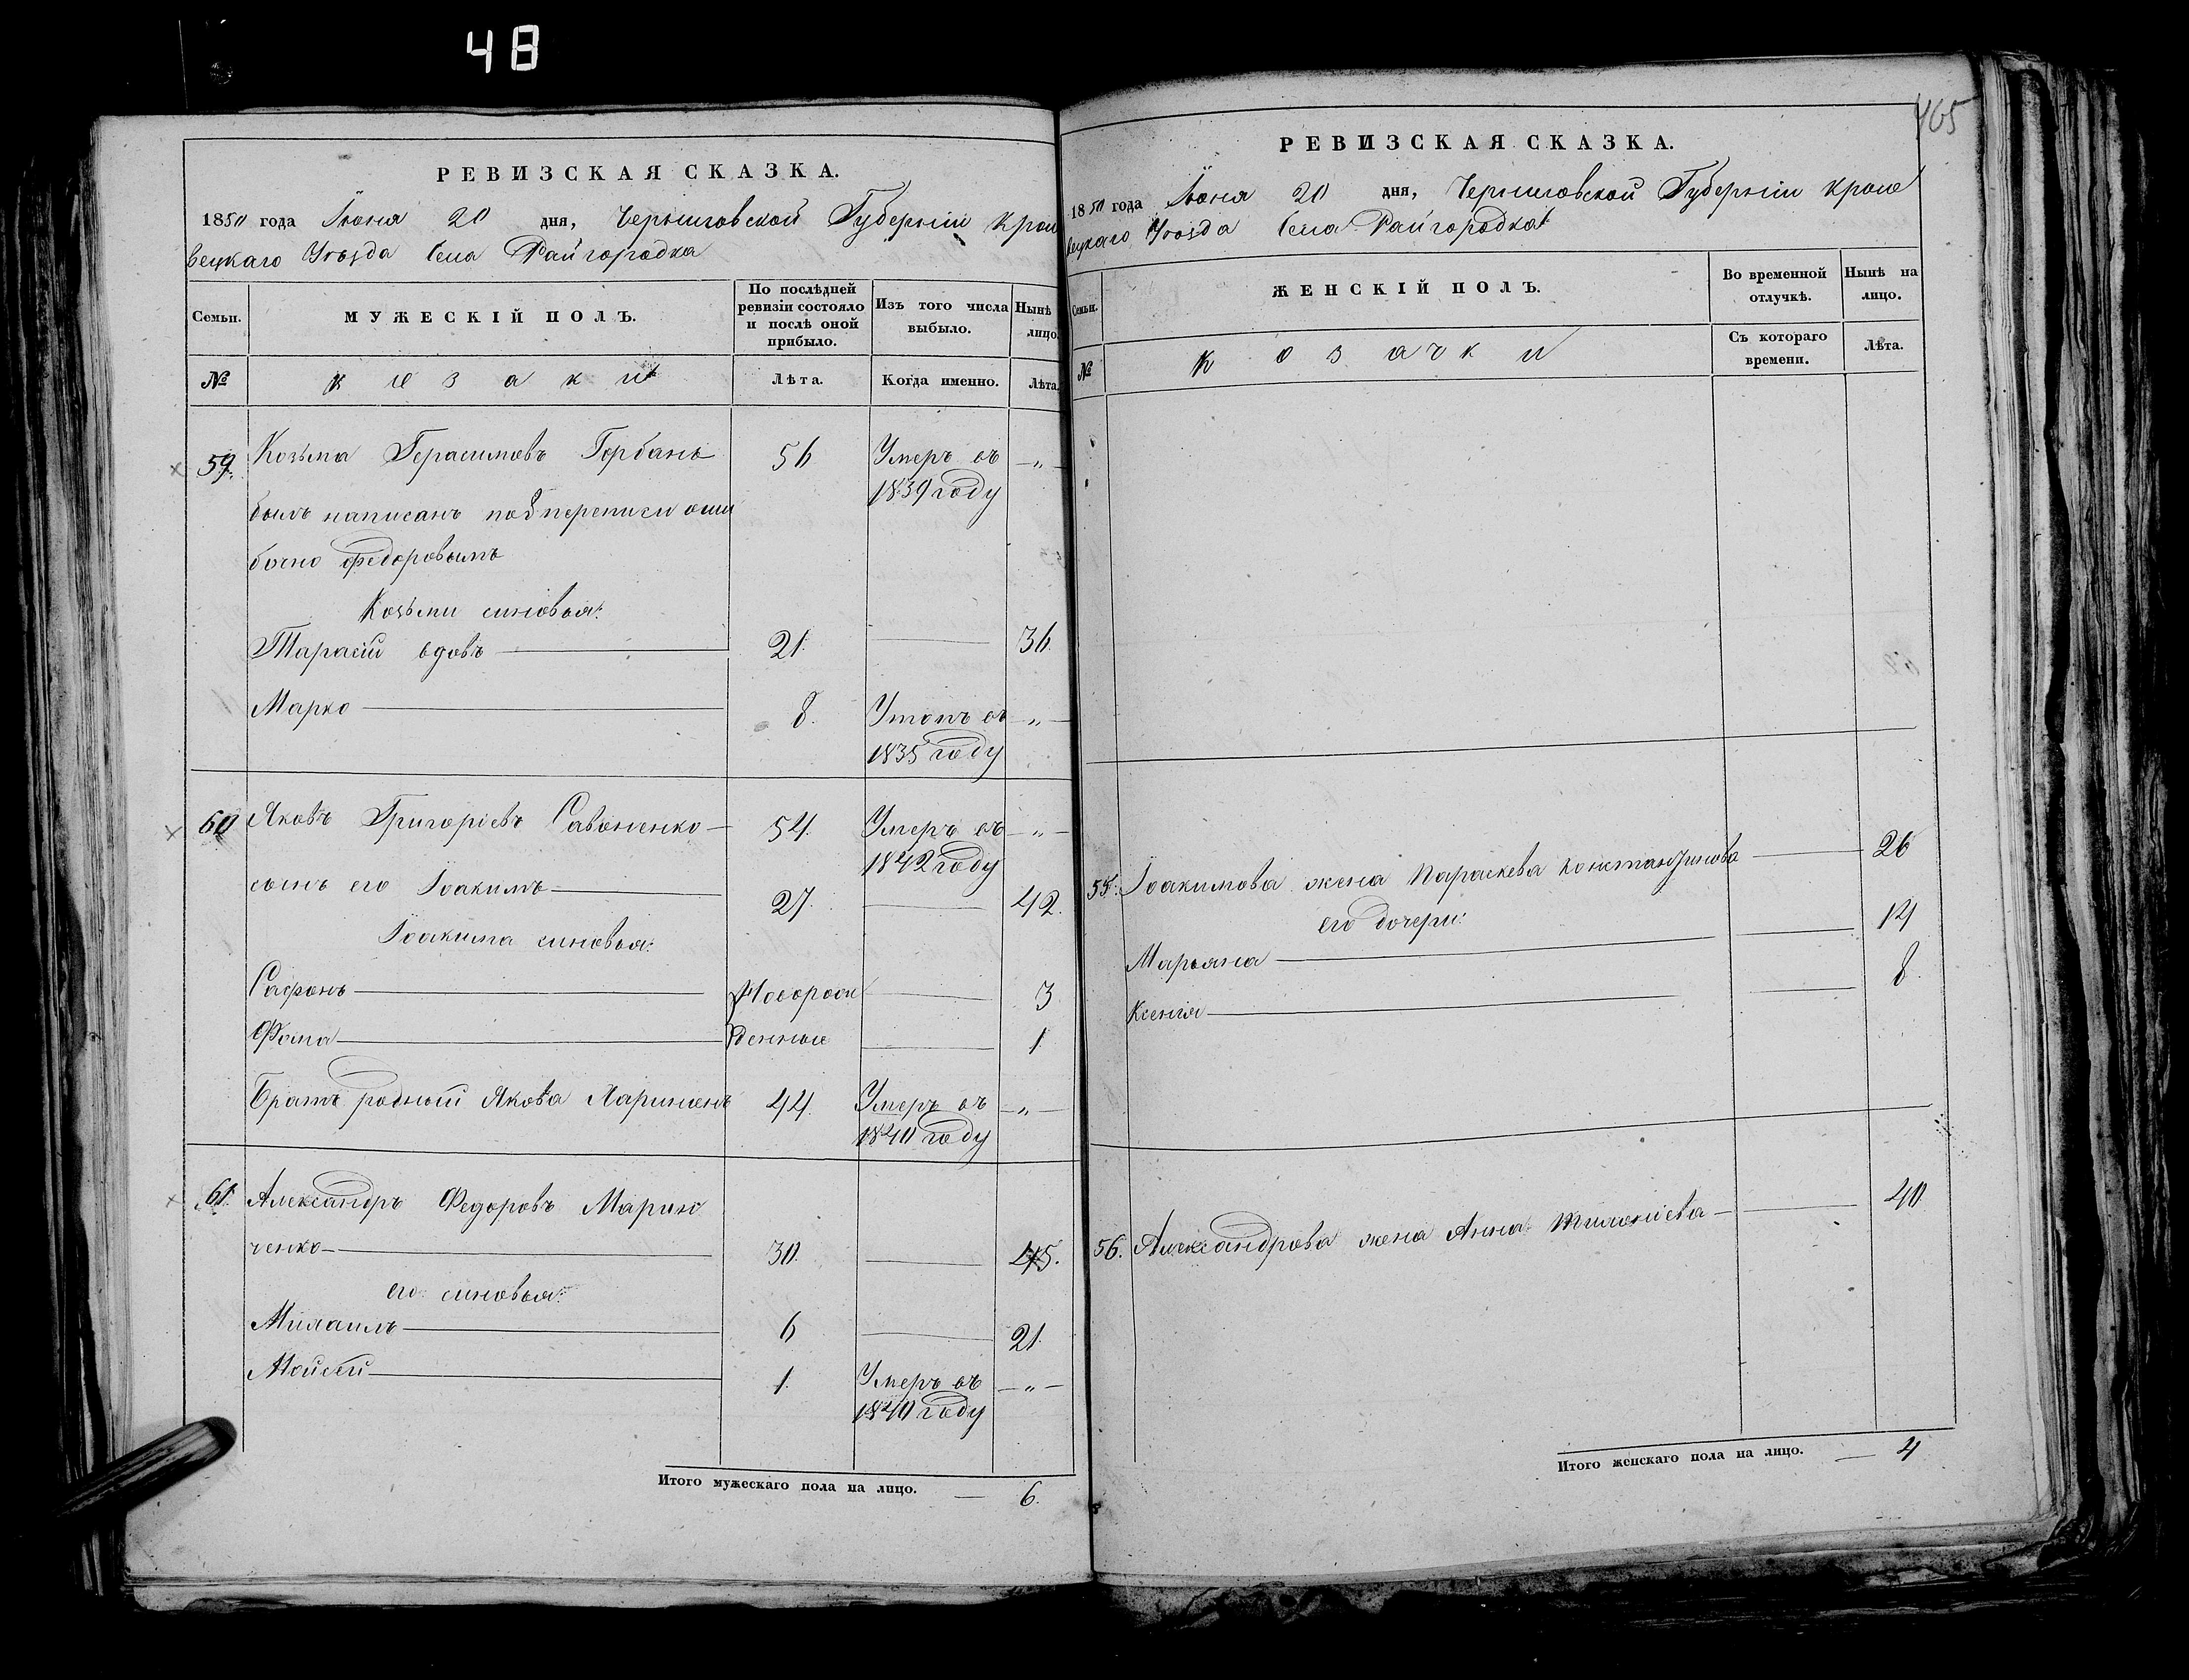 48
РЕВИЗСКАЯ СКАЗКА.
1850 года Июня 20 дня, Черниговской Губерніи Кроле
вецкаго Уѣзда Села Райгородка
Семьи.
МУЖЕСКІЙ ПОЛЪ.
По послѣдней ревизіи состояло и послѣ оной прибыло.
Изъ того числа выбыло.
Нынѣ лицо.
№
Козаки
Лѣта.
Когда именно.
Лѣта.
59. Козьма Герасимовъ Горбань 56 Умеръ въ — „ —
1839 году
былъ написанъ по 8 переписи оши
бочно Федоровымъ
Козьмы сыновья:
Тарасій вдовъ 21. 36.
Марко 8. Утопъ въ — „ —
1835 году
60 Яковъ Григоріевъ Савоненко 54. Умеръ въ — „ —
1842 году
сынъ его Іоакимъ 27. 42.
Іоакима сыновья:
Сафонъ Новорож 3
Фома денные 1
Братъ родный Якова Ларионъ 44. Умеръ въ — „ —
1840 году
61. Александръ Федоровъ Марин
ченко 30. 45.
его сыновья:
Михаилъ 6 21.
Мойсей 1. Умеръ въ — „ —
1840 году
Итого мужескаго пола на лицо. — 6.
465
РЕВИЗСКАЯ СКАЗКА.
1850 года Июня 20 дня, Черниговской Губерніи Кроле
вецкаго Уѣзда Села Райгородка
Семьи.
ЖЕНСКІЙ ПОЛЪ.
Во временной отлучкѣ.
Нынѣ на лицо.
№
Козачки
Съ котораго времени.
Лѣта.
55. Іоакимова жена Параскева Константинова 26
его дочери:
Марьяна 14
Ксенія 8.
56. Александрова жена Анна 40
Итого женскаго пола на лицо. — 4